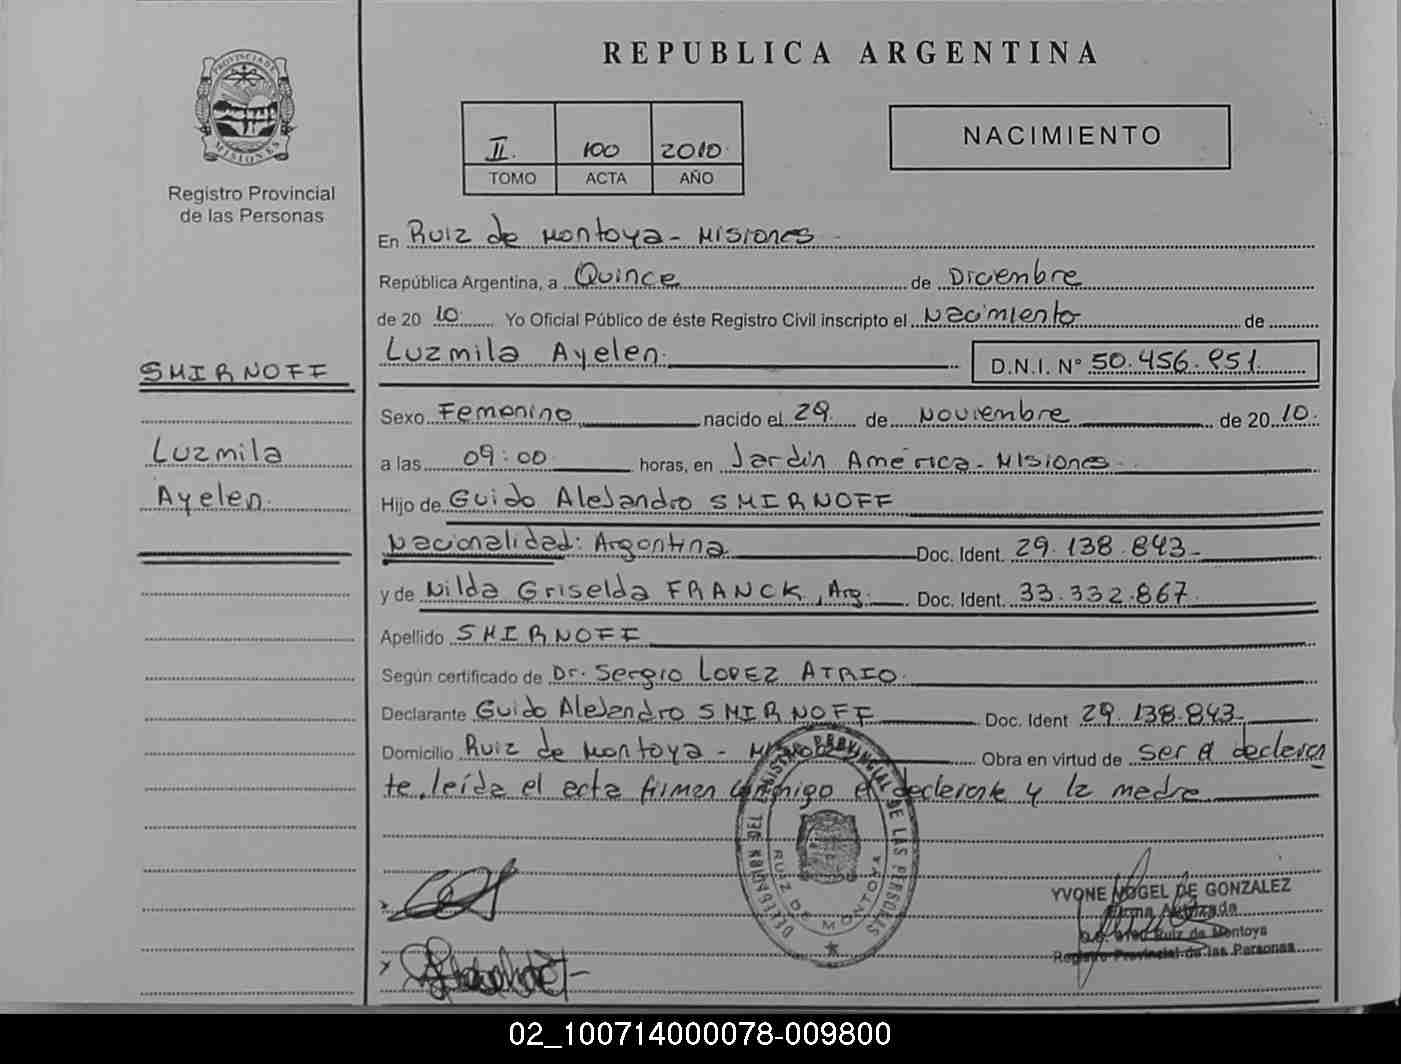 PROVINCIA DE
MISIONES
Registro Provincial
de las Personas
SMIRNOFF
Luzmila
Ayelen.
REPUBLICA ARGENTINA
II. 100 2010.
TOMO ACTA AÑO
NACIMIENTO
En Ruiz de Montoya - Misiones -
República Argentina, a Quince de Diciembre
de 20 10. Yo Oficial Público de éste Registro Civil inscripto el Nacimiento de
Luzmila Ayelen. D.N.I. N° 50.456.851.
Sexo Femenino, nacido el 29. de Noviembre de 20 10.
a las 09:00 horas, en Jardín América - Misiones -
Hijo de Guido Alejandro SMIRNOFF
Nacionalidad: Argentina Doc. Ident. 29.138.843-
y de Nilda Griselda FRANCK, Arg. Doc. Ident. 33.332.867.
Apellido SMIRNOFF
Según certificado de Dr. Sergio LOPEZ ATRIO.
Declarante Guido Alejandro SMIRNOFF Doc. Ident 29.138.843-
Domicilio Ruiz de Montoya - Obra en virtud de ser el declaran
te, leída el acta firman conmigo el declarante y la madre
DELEGACION DEL REGISTRO PROVINCIAL DE LAS PERSONAS
RUIZ DE MONTOYA
YVONE VOGEL DE GONZALEZ
Firma Autorizada
Ruiz de Montoya
Registro Provincial de las Personas
02_100714000078-009800